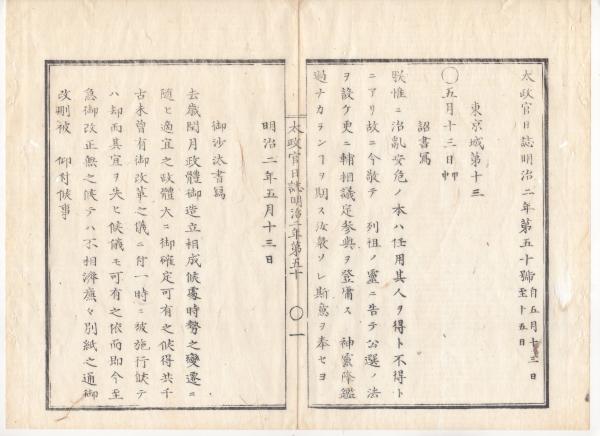 太政官日誌明治二年第五十號 自五月十三日 至十五日
東京城第十三
〇五月十三日 甲申
詔書寫
朕惟ニ治亂安危ノ本ハ任用其人ヲ得ト不得ト
ニアリ故ニ今敬テ 列祖ノ靈ニ告テ公選ノ法
ヲ設ケ更ニ輔相議定參與ヲ登庸ス 神靈降鑑
過ナカランヿヲ期ス汝衆ソレ斯意ヲ奉セヨ
太政官日誌明治二年第五十 〇一
明治二年五月十三日
御沙汰書寫
去歳閏月政體御造立相成候處時勢之變遷ニ
隨ヒ適宜之政體大ニ御確定可有之候得共千
古未曾有御改革之儀ニ付一時ニ被施行候テ
ハ却而其宜ヲ失ヒ候儀モ可有之依而即今至
急御改正無之候テハ不相濟廉々別紙之通御
改刪被 仰付候事